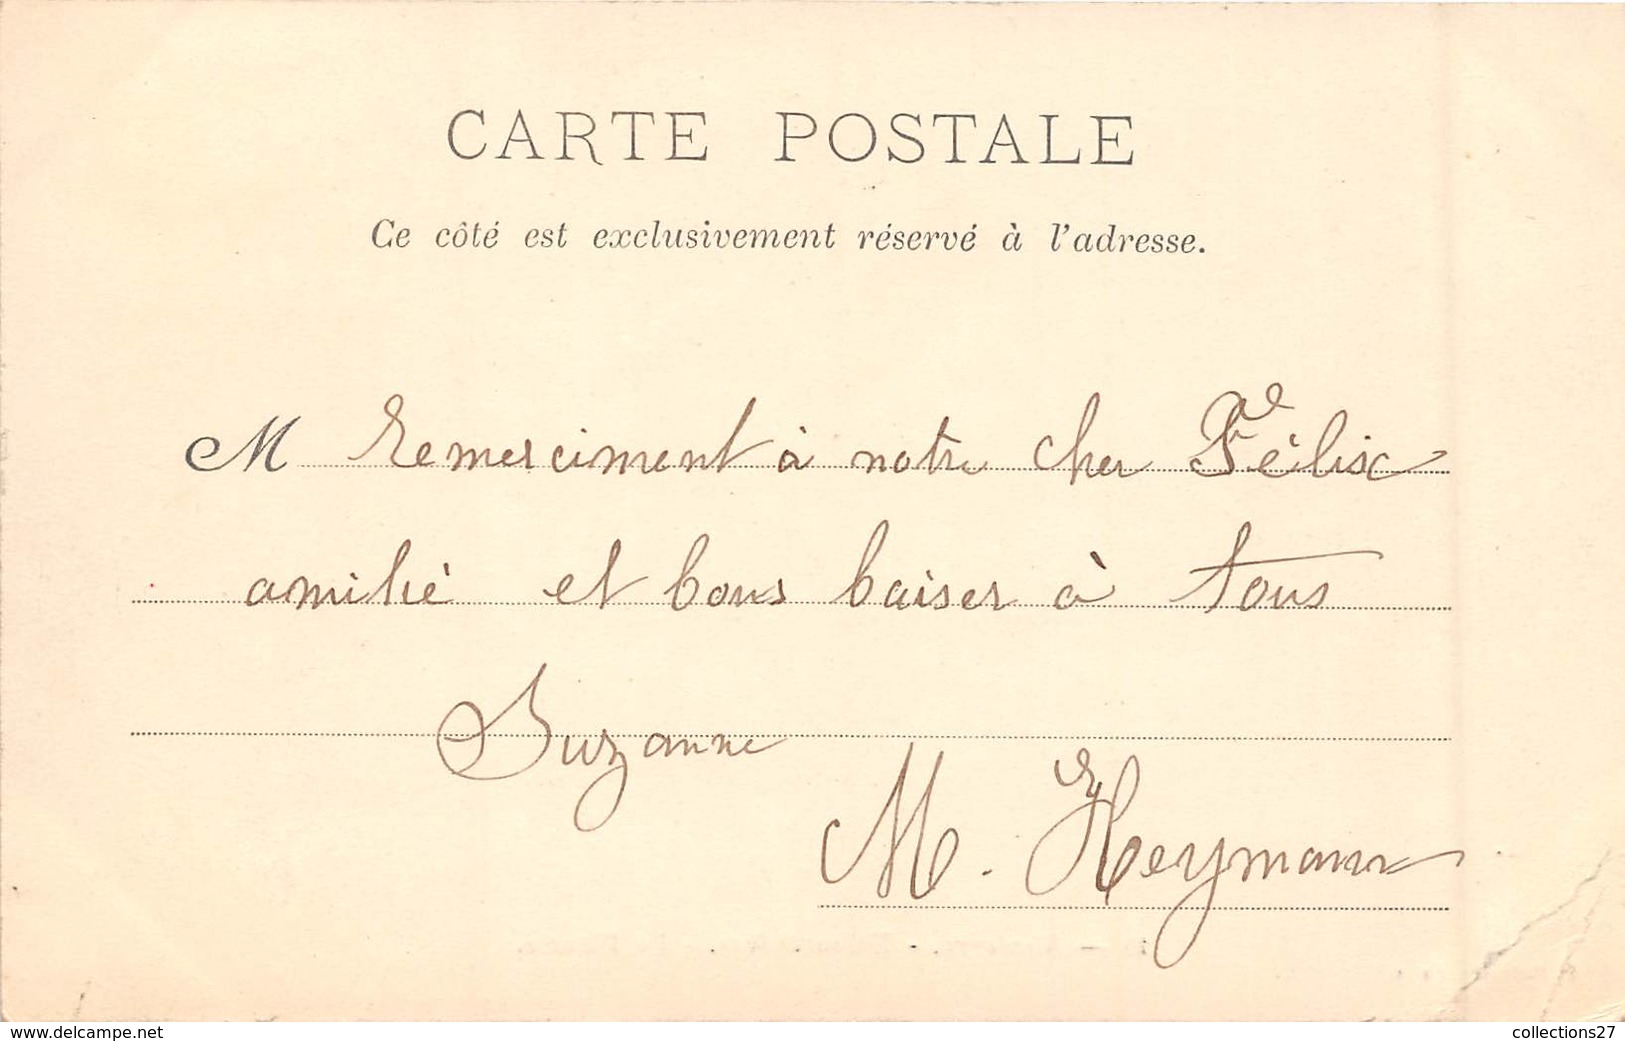 CARTE POSTALE
Ce côté est exclusivement réservé à l'adresse.
M Remerciment à notre cher Félix
amitié et bons baiser à tous
Suzanne
M. Heymann
www.delcampe.net
collections27